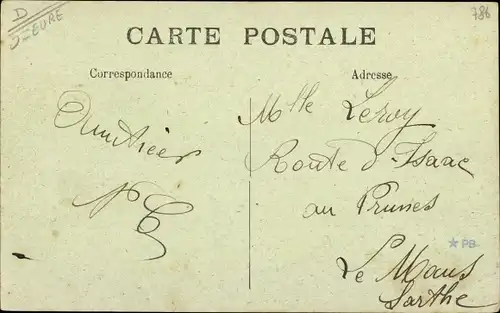 D
EURE
786
CARTE POSTALE
Correspondance
Adresse
Amitiés
Mlle Leroy
Route d'Isaac
au Prunes
Le Mans
Sarthe
*PB